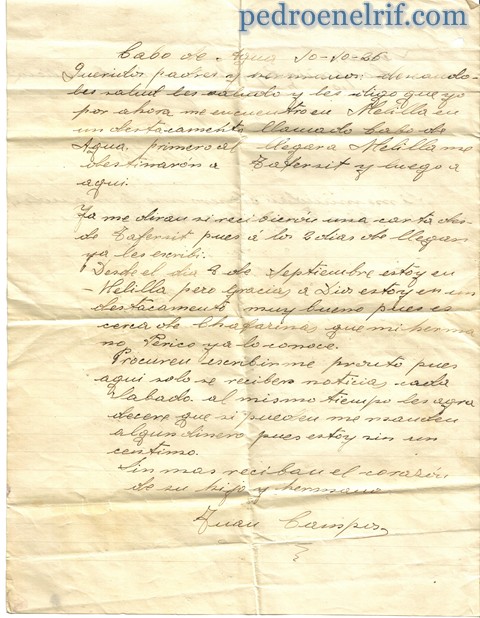 pedroenelrif.com
Cabo de Agua 10-10-26
Queridos padres y hermanos: deseando-
les salud les saludo y les digo que yo
por ahora me encuentro en Melilla en
un destacamento llamado Cabo de
Agua, primero al llegar a Melilla me
destinarón a Tafersit y luego a
aqui.
Ya me diran si recibieron una carta des-
de Tafersit pues á los 2 dias de llegar
ya les escribi.
Desde el dia 2 de Septiembre estoy en
Melilla pero gracias a Dios estoy en un
destacamento muy bueno pues es
cerca de Chafarinas que mi herma
no Perico ya lo conoce.
Procuren escribirme pronto pues
aqui solo se reciben noticias cada
Sabado. al mismo tiempo les agra
decere que si pueden me manden
algun dinero pues estoy sin un
centimo.
Sin mas reciban el corazón
de su hijo y hermano
Juan Campos